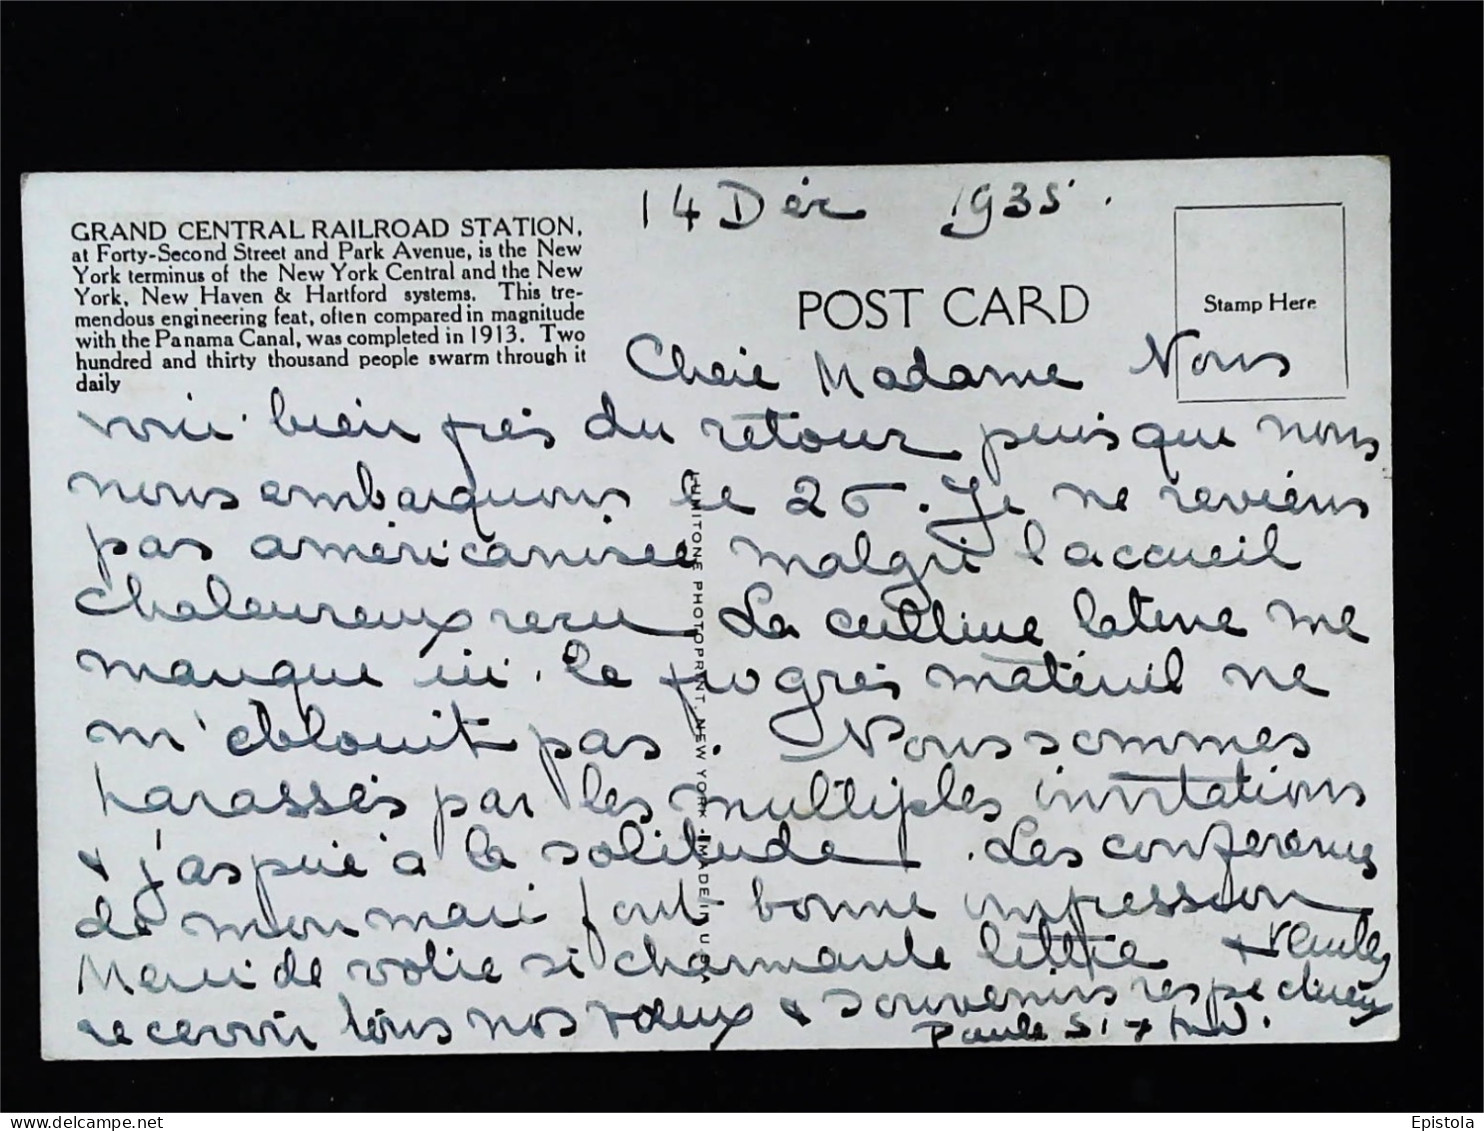 14 Déc 1935.
GRAND CENTRAL RAILROAD STATION,
at Forty-Second Street and Park Avenue, is the New
York terminus of the New York Central and the New
York, New Haven & Hartford systems. This tre-
mendous engineering feat, often compared in magnitude
with the Panama Canal, was completed in 1913. Two
hundred and thirty thousand people swarm through it
daily
POST CARD
Stamp Here
Chère Madame Nous
voici bien près du retour puisque nous
nous embarquons le 26. Je ne reviens
pas américanisée malgré l'accueil
chaleureux reçu La culture latine me
manque ici. Le progrès matériel ne
m'éblouit pas. Nous sommes
harassés par les multiples invitations
& j'aspire à la solitude. Les conférences
de mon mari font bonne impression
Merci de votre si charmante lettre & veuillez
recevoir tous nos vœux & souvenirs respectueux
Paule
LUMITONE PHOTOPRINT, NEW YORK - MADE IN U.S.A.
delcampe.net
Epistola